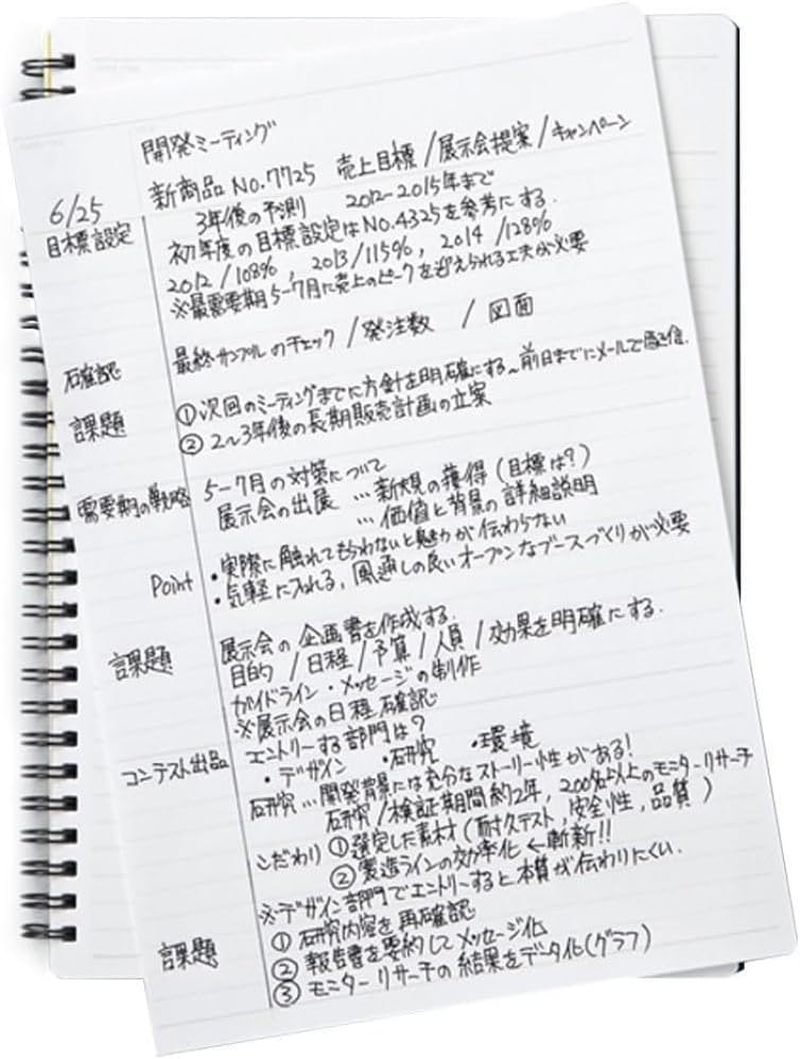 開発ミーティング
6/25 新商品 No.7725 売上目標/展示会提案/キャンペーン
目標設定 3年後の予測 2012-2015年まで
初年度の目標設定はNo.4325を参考にする.
2012/108%, 2013/115%, 2014/128%
※最需要期5-7月に売上のピークを迎えられる工夫が必要
確認 最終サンプルのチェック/発注数/図面
課題 ①次回のミーティングまでに方針を明確にする~前日までにメールで配信.
②2~3年後の長期販売計画の立案
需要期の戦略 5-7月の対策について
展示会の出展 …新規の獲得(目標は?)
…価値と背景の詳細説明
Point ・実際に触れてもらわないと魅力が伝わらない
・気軽に入れる, 風通しの良いオープンなブースづくりが必要
課題 展示会の企画書を作成する.
目的/日程/予算/人員/効果を明確にする.
ガイドライン・メッセージの制作
※展示会の日程確認
コンテスト出品 エントリーする部門は?
・デザイン ・研究 ・環境
研究…開発背景には充分なストーリー性がある!
研究/検証期間約2年, 200名以上のモニターリサーチ
こだわり ①選定した素材(耐久テスト, 安全性, 品質)
②製造ラインの効率化←斬新!!
※デザイン部門でエントリーすると本質が伝わりにくい.
課題 ①研究内容を再確認
②報告書を要約してメッセージ化
③モニターリサーチの結果をデータ化(グラフ)